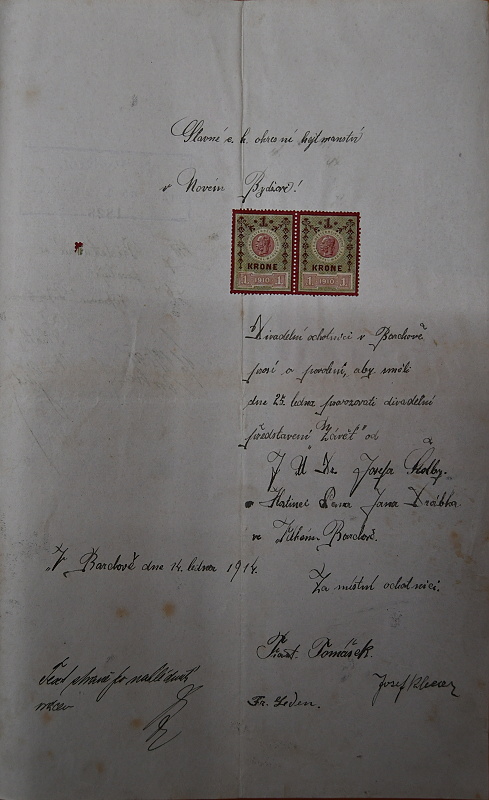 Slavné c. k. okresní hejtmanství
v Novém Bydžově!
1 1
KRONE KRONE
1 1910 1 1 1910 1
Divadelní ochotníci v Barchově
prosí o povolení, aby směli
dne 25. ledna provozovati divadelní
představení „Závěť" od
J U Dr. Josefa Štolby.
v Hostinci Pana Jana Drábka
ve Vlkém Barchově.
V Barchově dne 14. ledna 1914.
Za místní ochotníci.
Frant. Tomášek.
Josef
Text
Fr. Leden.